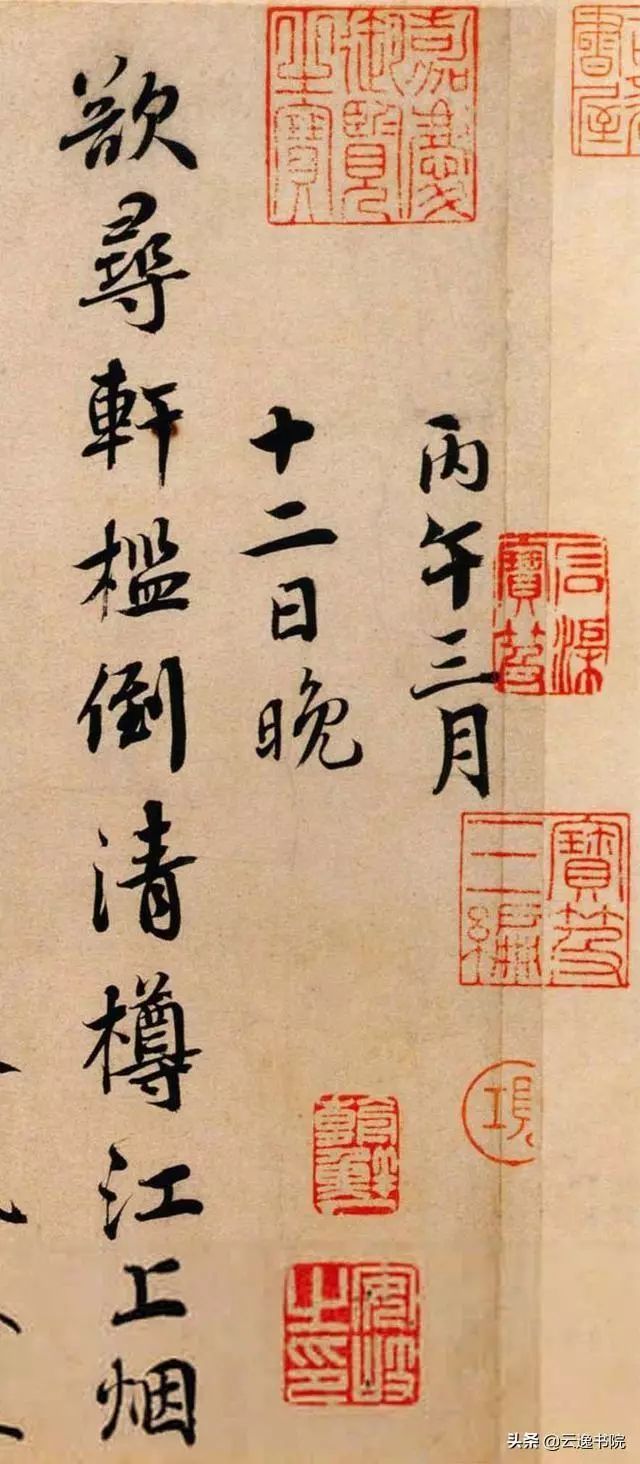 丙午三月
十二日晚
欲尋軒檻倒清樽江上烟
嘉慶御覽之寶
寶笈三編
項
安岐之印
头条 @云逸书院